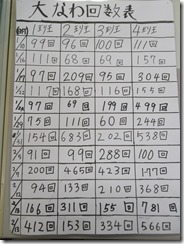 大なわ回数表
1班 2班 3班 4班
99回 96回 100回 111回
111回 68回 69回 157回
97回 209回 95回 304回
117回 168回 116回 155回
97回 69回 199回 499回
75回 111回 60回 244回
154回 683回 202回 538回
91回 99回 288回 100回
200回 465回 423回 177回
94回 133回 210回 368回
166回 311回 155回 781回
412回 153回 334回 566回